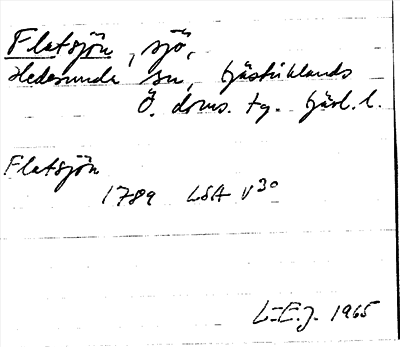 Flatsjön, sjö,
Hedesunda sn, Gästriklands
Ö. doms. tg. Gävl. l.
Flatsjön
1789 LSA V30
L-E.J. 1965